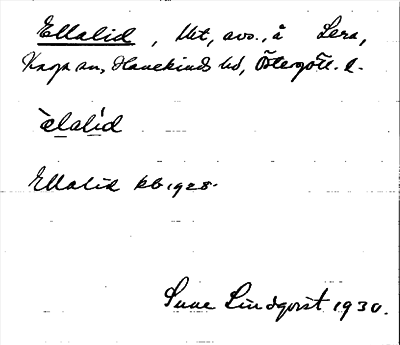 Ellalid, lht, avs., å Lera,
Kaga sn, Hanekinds hd, Östergötl. l.
èlalíd
Ellalid kb 1928.
Sune Lindqvist 1930.